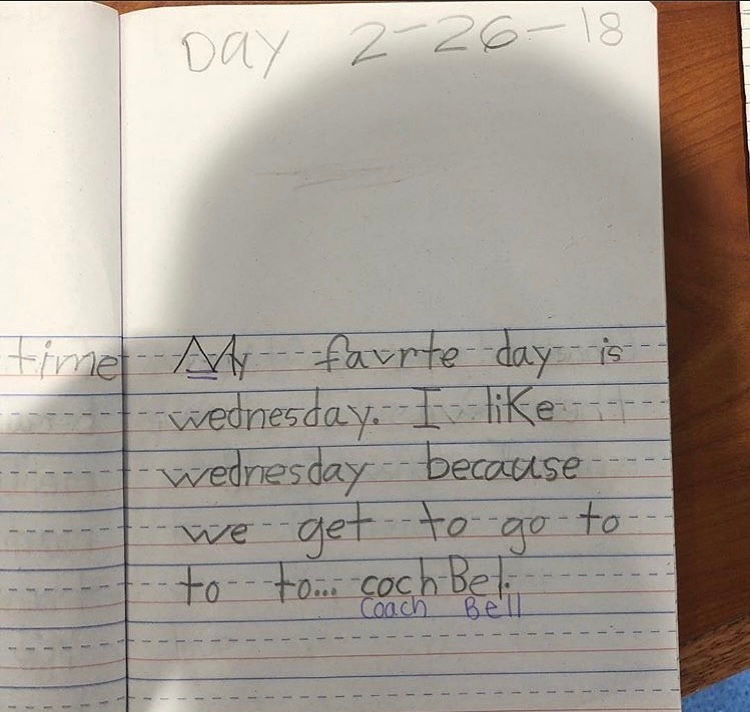 Day 2-26-18
time
My favrte day is
wednesday. I like
wednesday because
we get to go to
to to... coch Bel.
Coach Bell